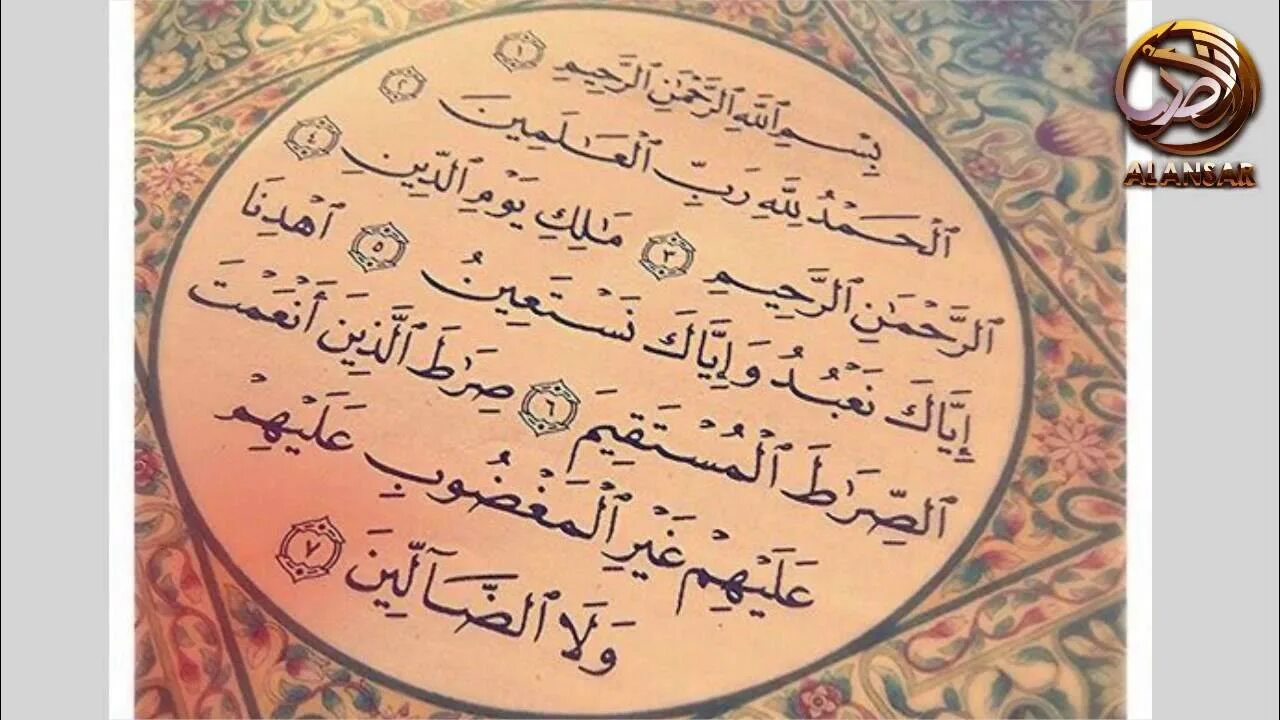 بِسْمِ ٱللَّهِ ٱلرَّحْمَٰنِ ٱلرَّحِيمِ ١
ٱلْحَمْدُ لِلَّهِ رَبِّ ٱلْعَٰلَمِينَ ٢
ٱلرَّحْمَٰنِ ٱلرَّحِيمِ ٣ مَٰلِكِ يَوْمِ ٱلدِّينِ ٤
إِيَّاكَ نَعْبُدُ وَإِيَّاكَ نَسْتَعِينُ ٥ ٱهْدِنَا
ٱلصِّرَٰطَ ٱلْمُسْتَقِيمَ ٦ صِرَٰطَ ٱلَّذِينَ أَنْعَمْتَ
عَلَيْهِمْ غَيْرِ ٱلْمَغْضُوبِ عَلَيْهِمْ
وَلَا ٱلضَّآلِّينَ ٧
ALANSAR